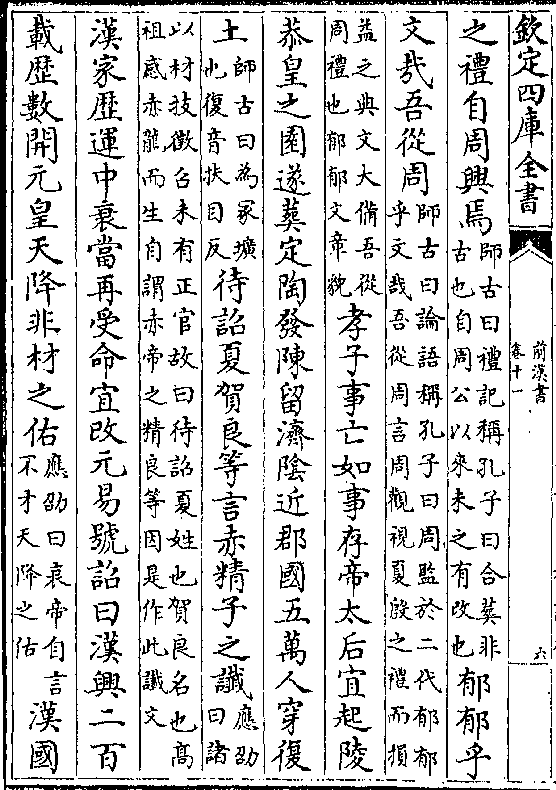 欽定四庫全書
前漢書
卷十一
六
之禮自周興焉師古曰禮記稱孔子曰合葬非
古也自周公以來未之有改也郁郁乎
文哉吾從周師古曰論語稱孔子曰周監於二代郁郁
乎文哉吾從周言周觀視夏殷之禮而損
益之典文大備吾從
周禮也郁郁文章貌孝子事亡如事存帝太后宜起陵
恭皇之園遂葬定陶發陳留濟陰近郡國五萬人穿復
土師古曰為冢壙
也復音扶目反待詔夏賀良等言赤精子之讖應劭
曰諸
以材技徵召未有正官故曰待詔夏姓也賀良名也高
祖感赤龍而生自謂赤帝之精良等因是作此讖文
漢家歷運中衰當再受命宜改元易號詔曰漢興二百
載歷數開元皇天降非材之佑應劭曰哀帝自言
不才天降之佑漢國